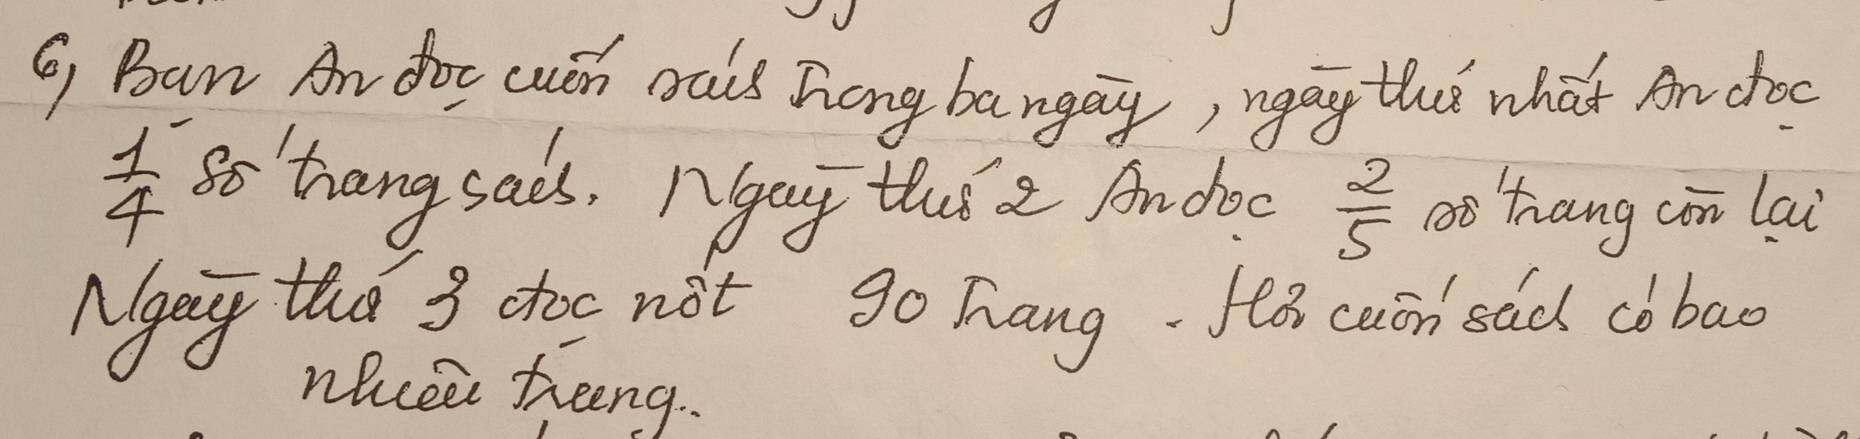 6, Bạn An đọc cuốn sách trong ba ngày, ngày thứ nhất An đọc
1/4 số trang sách. Ngày thứ 2 An đọc 2/5 số trang còn lại
Ngày thứ 3 đọc nốt 90 trang. Hỏi cuốn sách có bao
nhiêu trang..